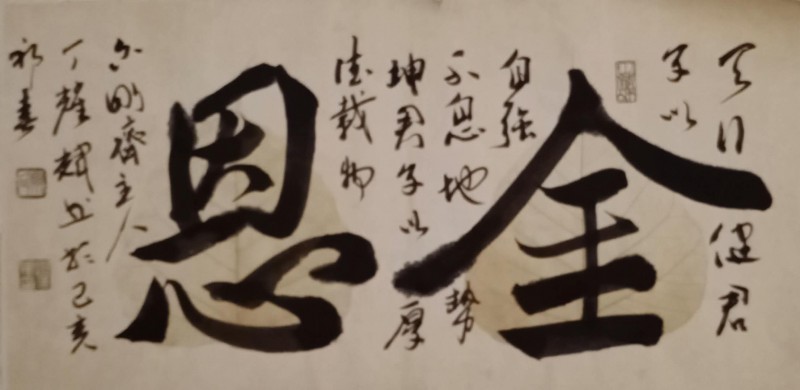 全恩
天行健君
子以
自强
不息地勢
坤君子以厚
德載物
尔刚齋主人
丁耀輝书於己亥
初春